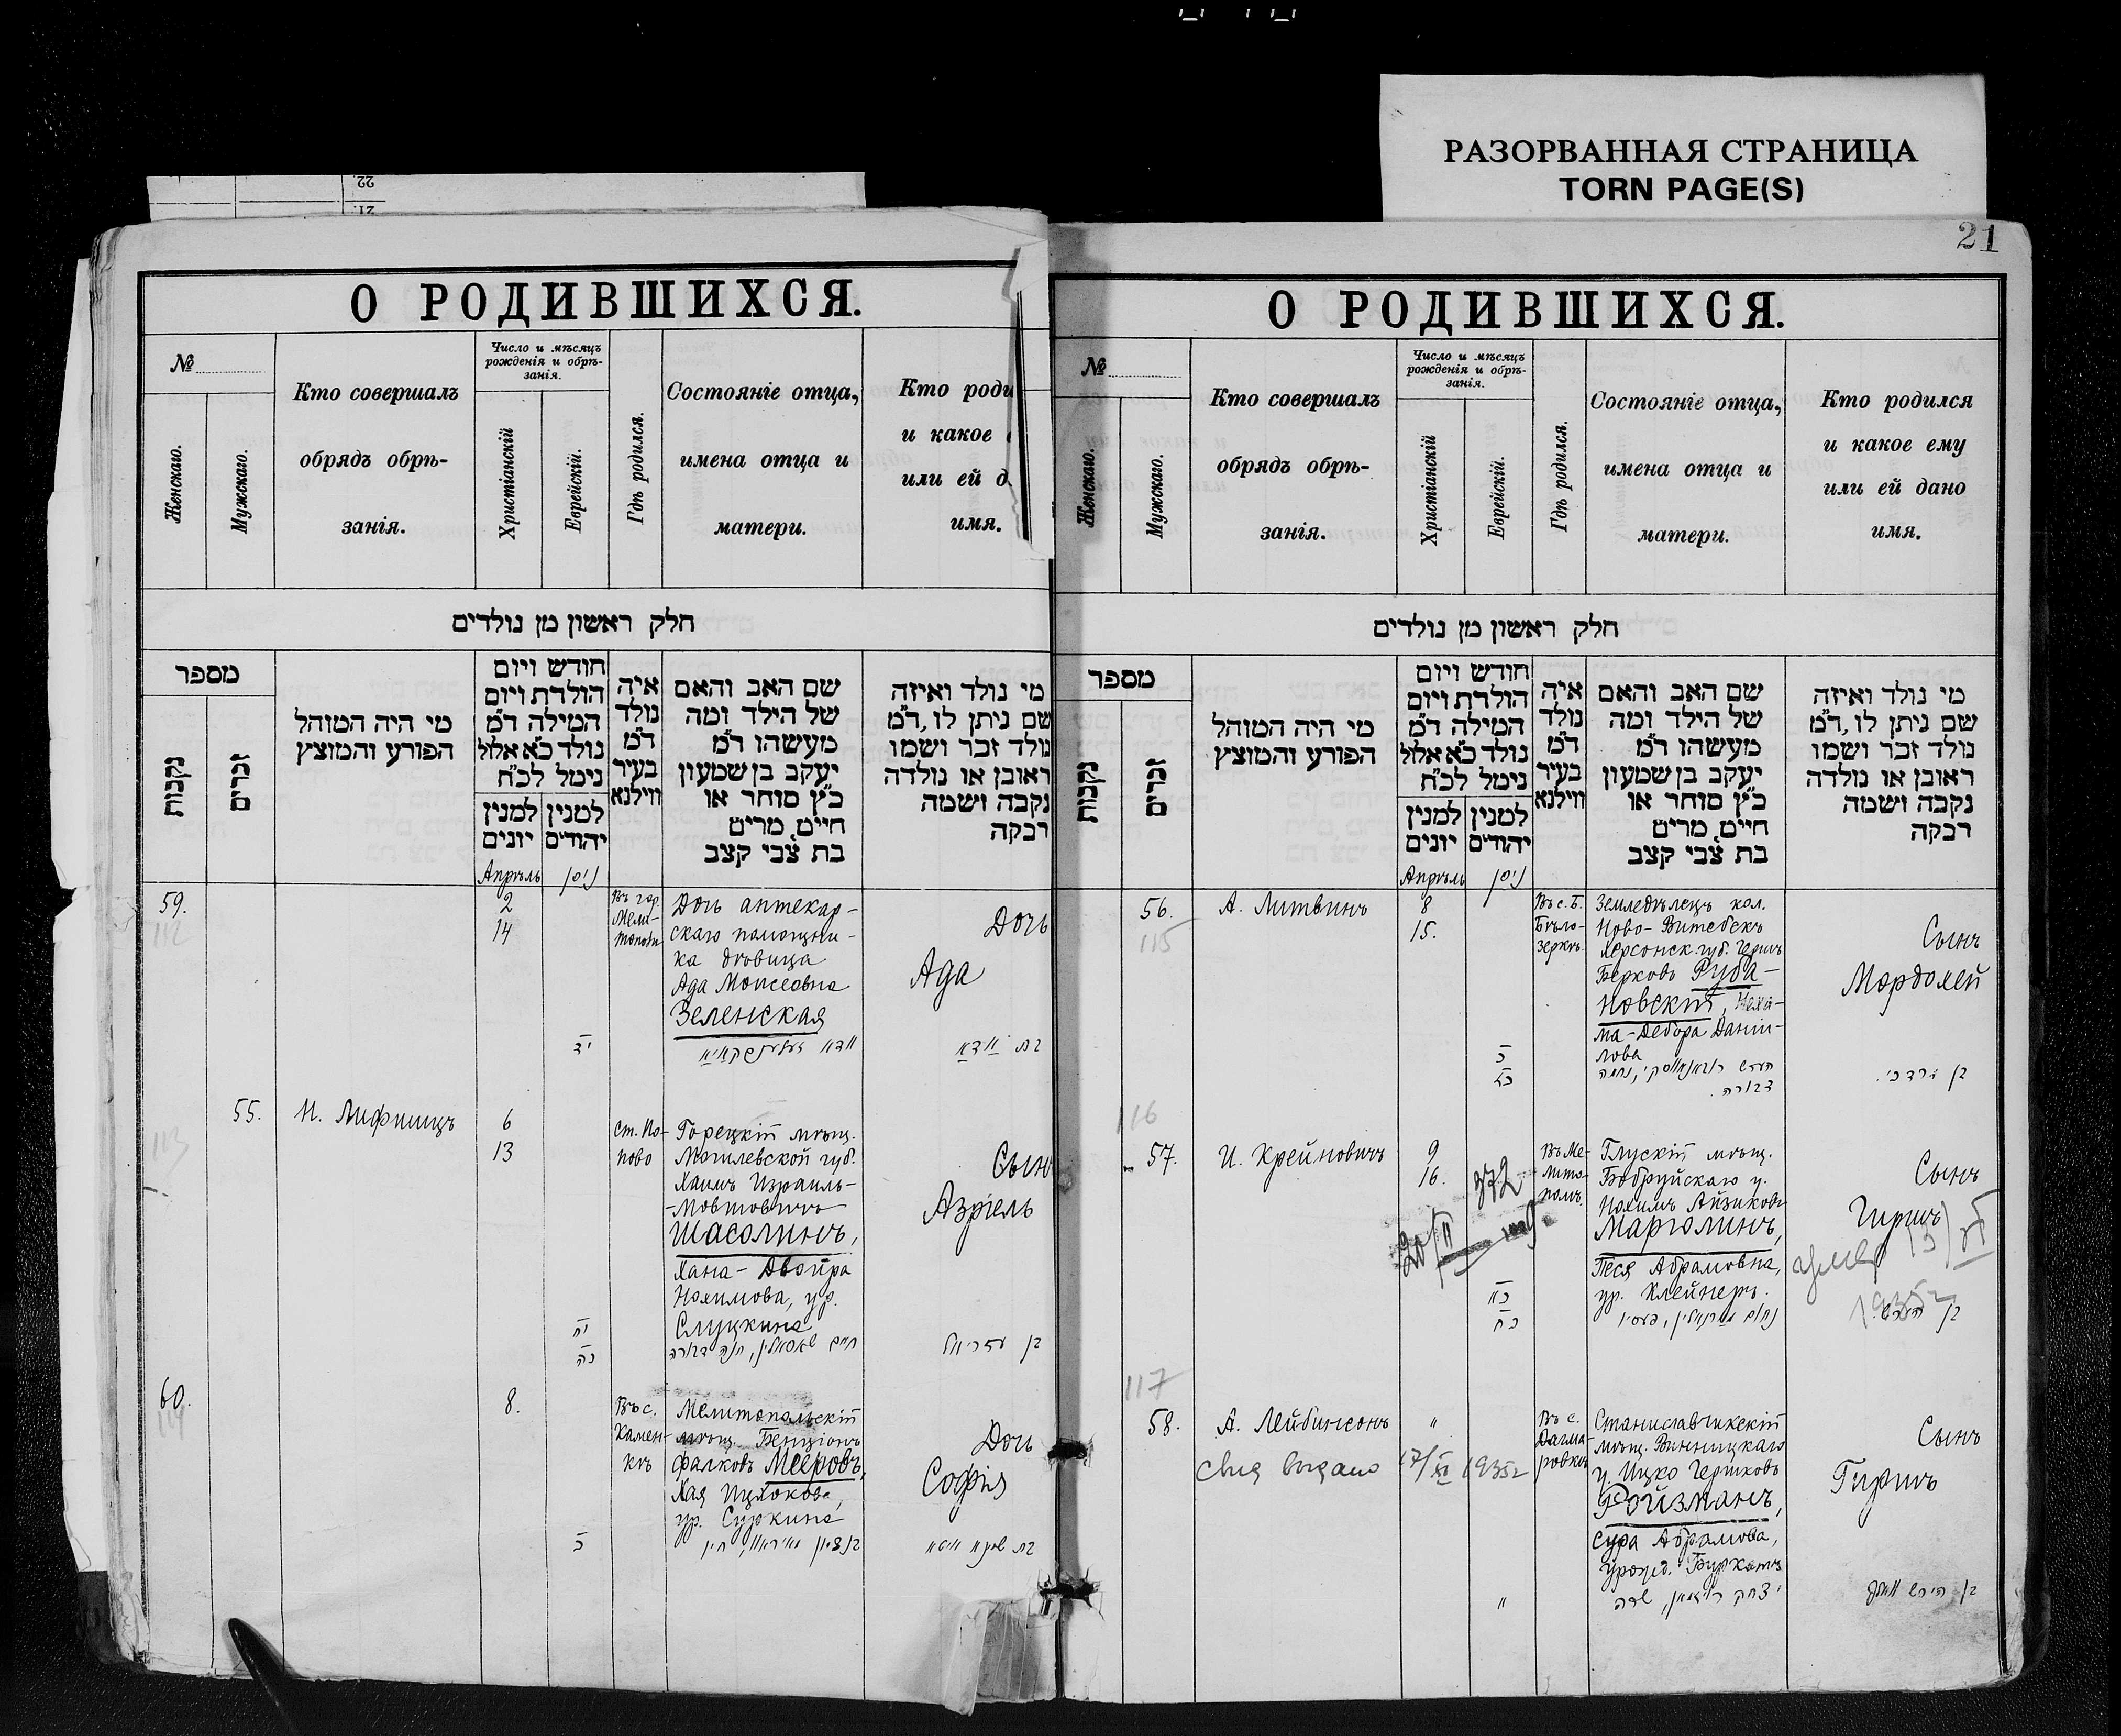 РАЗОРВАННАЯ СТРАНИЦА
TORN PAGE(S)
22.
21.
21
О РОДИВШИХСЯ.
№
Женскаго.
Мужскаго.
Кто совершалъ
обрядъ обрѣ-
занія.
Число и мѣсяцъ
рожденія и обрѣ-
занія.
Христіанскій
Еврейскій.
Гдѣ родился.
Состояніе отца,
имена отца и
матери.
Кто роди
и какое
или ей д
имя.
חלק ראשון מן נולדים
מספר
נקבות
זכרים
מי היה המוהל
הפורע והמוצץ
חודש ויום
הולדת ויום
המילה ד"מ
נולד כ"א אלול
נימל לכ"ח
למנין יונים
למנין יהודים
איה
נולד
ד"מ
בעיר
ווילנא
שם האב והאם
של הילד ומה
מעשהו ד"מ
יעקב בן שמעון
כ"ץ סוחר או
חיים, מרים
בת צבי קצב
מי נולד ואיזה
שם ניתן לו, ד"מ
נולד זכר ושמו
ראובן או נולדה
נקבה ושמה
רבקה
Апрѣль
ניסן
59.
112
2
14
Въ гор.
Мели-
Дочь аптекар-
скаго помощни-
ка дѣвица
Ада Моисеовна
Зеленская
Дочь
Ада
יד
בת אדא
55.
113
И. Лифшицъ
6
13
Ст. По-
пово
Горецкій мѣщ.
Могилевской губ.
Хаимъ Израиль-
-Мовшовичъ
Шасолинъ,
Хана-Двойра
Нохимова, ур.
Слуцкина
Сын
Азріель
יח
כה
בן עזריאל
60.
114
8.
Въ с.
Камен-
кѣ
Мелитопольскій
мѣщ. Бенціонъ
Фалковъ Мееровъ,
Хая Ицкокова,
ур. Суркина
Дочь
Софія
כ
О РОДИВШИХСЯ.
№
Женскаго.
Мужскаго.
Кто совершалъ
обрядъ обрѣ-
занія.
Число и мѣсяцъ
рожденія и обрѣ-
занія.
Христіанскій
Еврейскій.
Гдѣ родился.
Состояніе отца,
имена отца и
матери.
Кто родился
и какое ему
или ей дано
имя.
חלק ראשון מן נולדים
מספר
נקבות
זכרים
מי היה המוהל
הפורע והמוצץ
חודש ויום
הולדת ויום
המילה ד"מ
נולד כ"א אלול
נימל לכ"ח
למנין יונים
למנין יהודים
איה
נולד
ד"מ
בעיר
ווילנא
שם האב והאם
של הילד ומה
מעשהו ד"מ
יעקב בן שמעון
כ"ץ סוחר או
חיים, מרים
בת צבי קצב
מי נולד ואיזה
שם ניתן לו, ד"מ
נולד זכר ושמו
ראובן או נולדה
נקבה ושמה
רבקה
Апрѣль
ניסן
56.
115
А. Литвинъ
8
15.
Въ с. Б.
Бѣло-
зеркѣ.
Земледѣлецъ кол.
Ново-Витебскъ
Херсонск. губ. Гершъ
Берковъ Руба-
новскій, Неха-
ма-Дебора Даніи-
лова
דבורה.
Сынъ
Мордохей
בן מרדכי.
116
57.
И. Крейновичъ
9
16.
Въ Ме-
лито-
полѣ.
Глускій мѣщ.
Бобруйскаго у.
Нохимъ Айзиковъ
Марголинъ,
Песя Абрамовна,
ур. Клейнеръ.
Сынъ
Гиршъ
умер
כא
כח
117
58.
А. Лейбинсонъ
"
Въ с.
Дагма-
ровкѣ
Станиславчикскій
мѣщ. Винницкаго
у. Ицко Гершковъ
Ройзманъ,
Сура Абрамова,
Сынъ
Гиршъ
выдано 17/XI 1935г
"